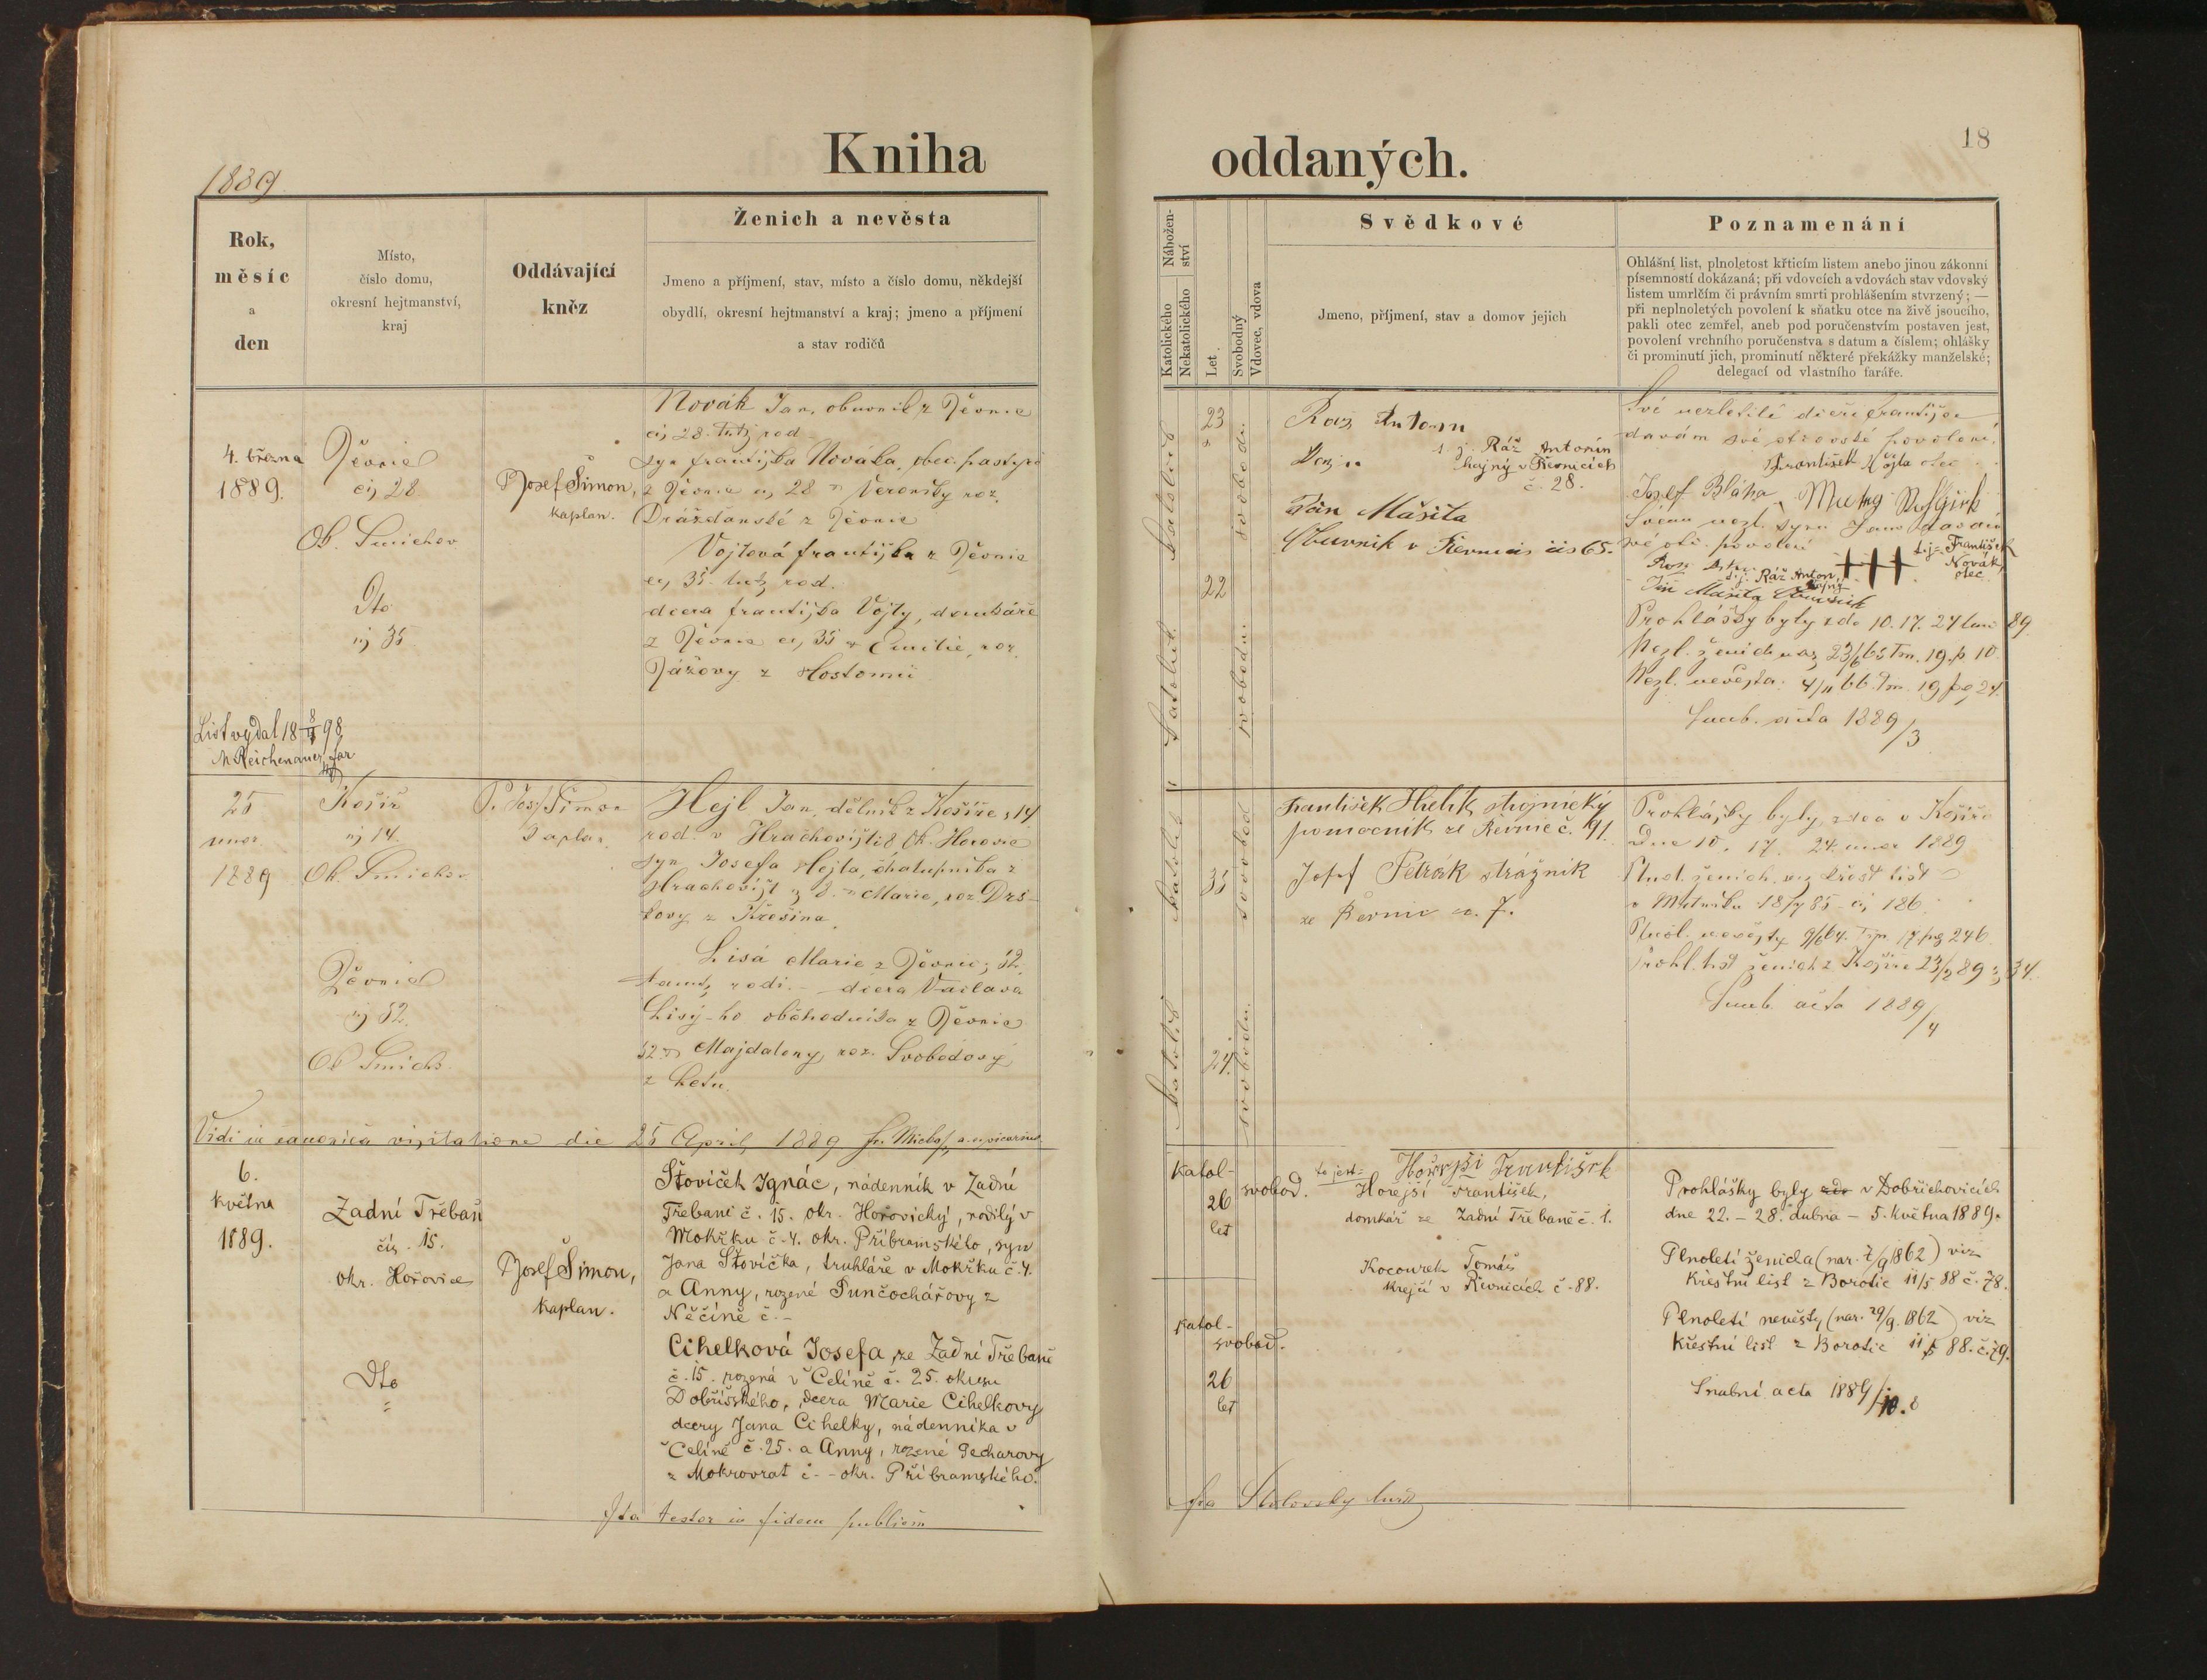 Kniha
1889.
Rok,
měsíc
a
den
Místo,
číslo domu,
okresní hejtmanství,
kraj
Oddávající
kněz
Ženich a nevěsta
Jmeno a příjmení, stav, místo a číslo domu, někdejší
obydlí, okresní hejtmanství a kraj; jmeno a příjmení
a stav rodičů
4. března
1889.
čís 28.
Ob. Smichov
Dto
čj 35
PJosef Šimon,
kaplan.
Novák Jan, obuvník z
čj 28. tutj rod.
syn Františka Nováka, obec. pastýře
28 Veroniky roz.
Drážďanské z
Vojtová Františka z
čj 35. tutj rod.
dcera Františka Vojty, domkáře
z čj 35 Emilie, roz.
z Hostomic
List vydal 18 8/ 98
M Reichenauer, far
25
unor
1889
Košíř
čj 14.
Ob. Smichov
čj 52.
Ob Smich.
P. Jos. Šimon
kaplan.
Hejl Jan, dělník z Košíře, 14
rod. v Hrachovišti 8, Ok. Horovic
syn Josefa Hejla, chalupníka z
Hrachovišť Marie, roz. Drs-
kovy z Křešína.
Lisá Marie z
tamtj rodi. - dcera Václava
Lisý-ho obchodníka z
52 Majdaleny, roz. Svobodový
z Letů.
Vidi in canonica visitatione die 25 April 1889
6.
května
1889.
Zadní Třebaň
čís. 15.
okr. Hořovice
Dto
=
PJosef Šimon,
kaplan.
Šťovíček Ignác, nádenník v Zadní
Třebani č. 15. okr. Hořovický, rodilý v
Mokřku č. 4. okr. Příbramského, syn
Jana Šťovíčka, truhláře v Mokřku č. 4.
a Anny, rozené Punčochářovy z
Něčíně č. -
Cihelková Josefa, ze Zadní Třebaně
č. 15. rozená v Celíně č. 25. okresu
Dobříšského, dcera Marie Cihelkovy
dcery Jana Cihelky, nádenníka v
Celíně č. 25. a Anny, rozené Pecharovy
z Mokrovrat č. - okr. Příbramského.
Ita testor in fidem publicam
oddaných.
18
Nábožen-
ství
Katolického
Nekatolického
Let
Svobodný
Vdovec, vdova
Svědkové
Jmeno, příjmení, stav a domov jejich
Poznamenání
Ohlášní list, plnoletost křticím listem anebo jinou zákonní
písemností dokázaná; při vdovcích a vdovách stav vdovský
listem umrlčím či právním smrti prohlášením stvrzený; —
při neplnoletých povolení k sňatku otce na živě jsoucího,
pakli otec zemřel, aneb pod poručenstvím postaven jest,
povolení vrchního poručenstva s datum a číslem; ohlášky
či prominutí jich, prominutí některé překážky manželské;
delegací od vlastního faráře.
katolík
23
svobodn.
katolick.
22
svobodn.
Antonin
t. j. Ráž Antonín
hajný v Řevnicích
č. 28.
Jan Mašita
Obuvník v Řevnicis čis 65.
Své nezletilé dceři Františce
davám své otcovské povolení.
František Vojta otec
Josef Bláha
Svému nezl. synu Janu
své otc. povolení
+++ t. j. František
Novák,
otec
t. j. Ráž Anton,
hajný
Jan Mašita Obuvník
Prohlášky byly zde 10. 17. 24 unor 89
Nezl. ženich nar 23/6 65 Tm. 19. p 10
Nezl. nevěsta: 4/11 66. Tm. 19 pg 24.
Snub. acta 1889/3
katolík
35
svobod
katolík
24.
svobodn.
František Hielik, strojnický
pomocník ze Řevnic č. 91.
Josef Petrák strážník
ze Řevnic č. 7.
Prohlášky byly zde a v Košíři
Dne 10. 17. 24. unor 1889
Plnol. ženich. viz křest list
čj 186.
Plnol. nevěsty 9/ 64. Tom 17 pg 246
Prohl. list ženich z Košíře 23/2 89 34.
Snub. acta 1889/4
katol-
26
let
svobod.
katol-
svobod.
26
let
to jest: Hořejší František
Hořejší František,
domkář ze Zadní Třebaně č. 1.
Kocourek Tomáš
krejčí v Řevnicích č. 88.
Prohlášky byly zde v Dobřichovicích
dne 22. - 28. dubna - 5. května 1889.
Plnoletí ženicha (nar. 7/9 1862) viz
křestní list z Borotic 11/5 88 č. 78.
Plnoletí nevěsty (nar. 29/9. 1862) viz
křestní list z Borotic 11/5 88. č. 79.
Snubní acta 1889/